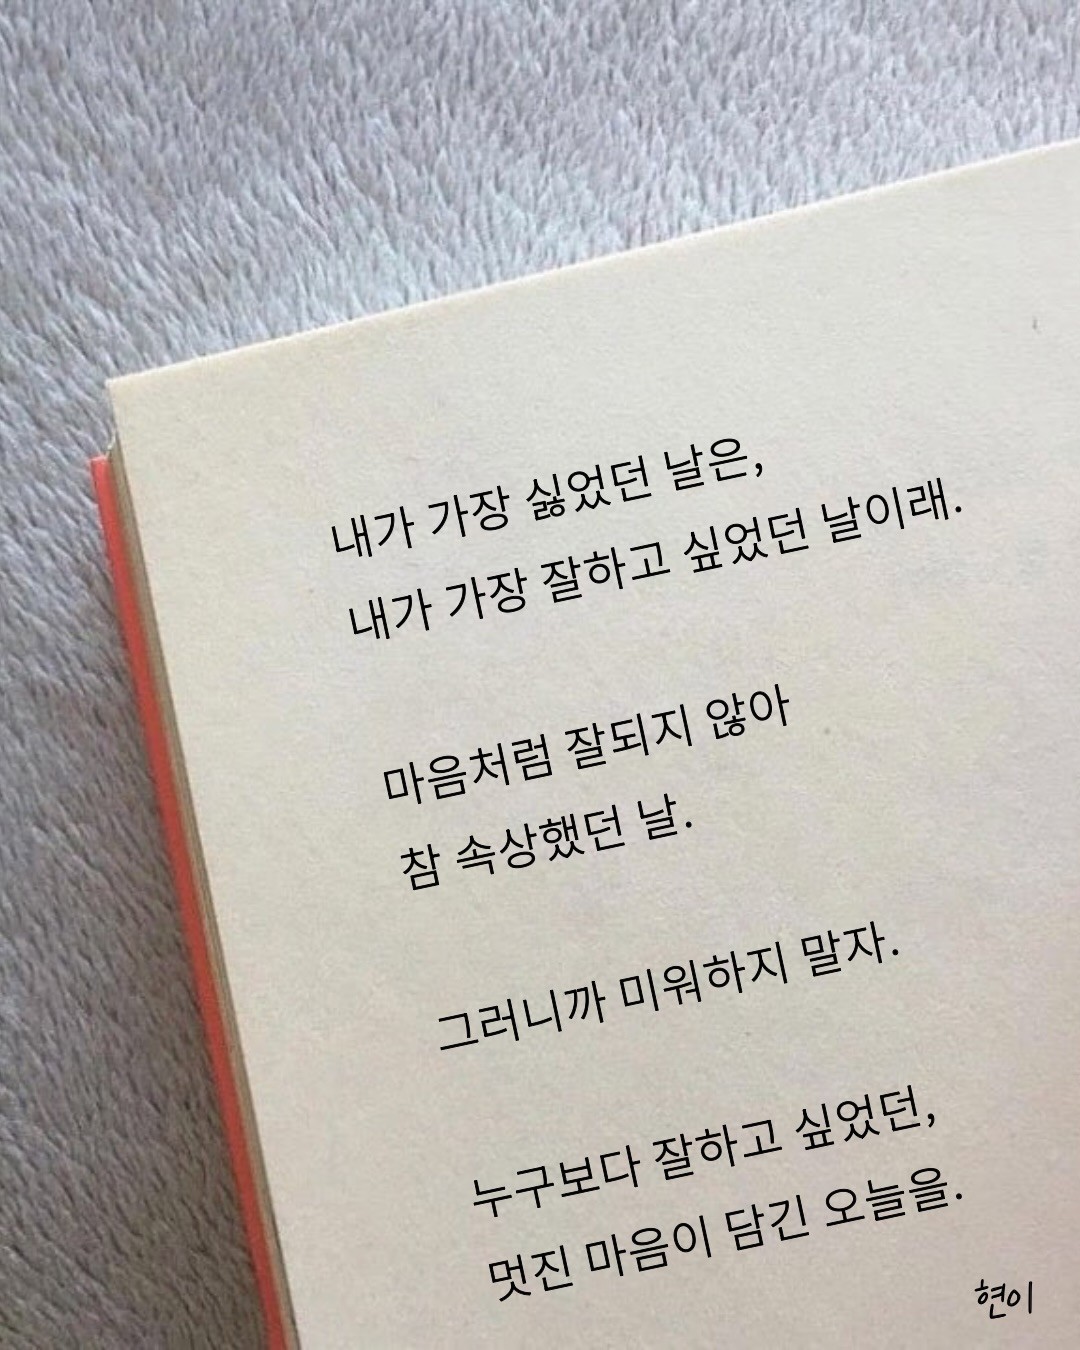 내가 가장 싫었던 날은,
내가 가장 잘하고 싶었던 날이래.
마음처럼 잘되지 않아
참 속상했던 날.
그러니까 미워하지 말자.
누구보다 잘하고 싶었던,
멋진 마음이 담긴 오늘을.
현이